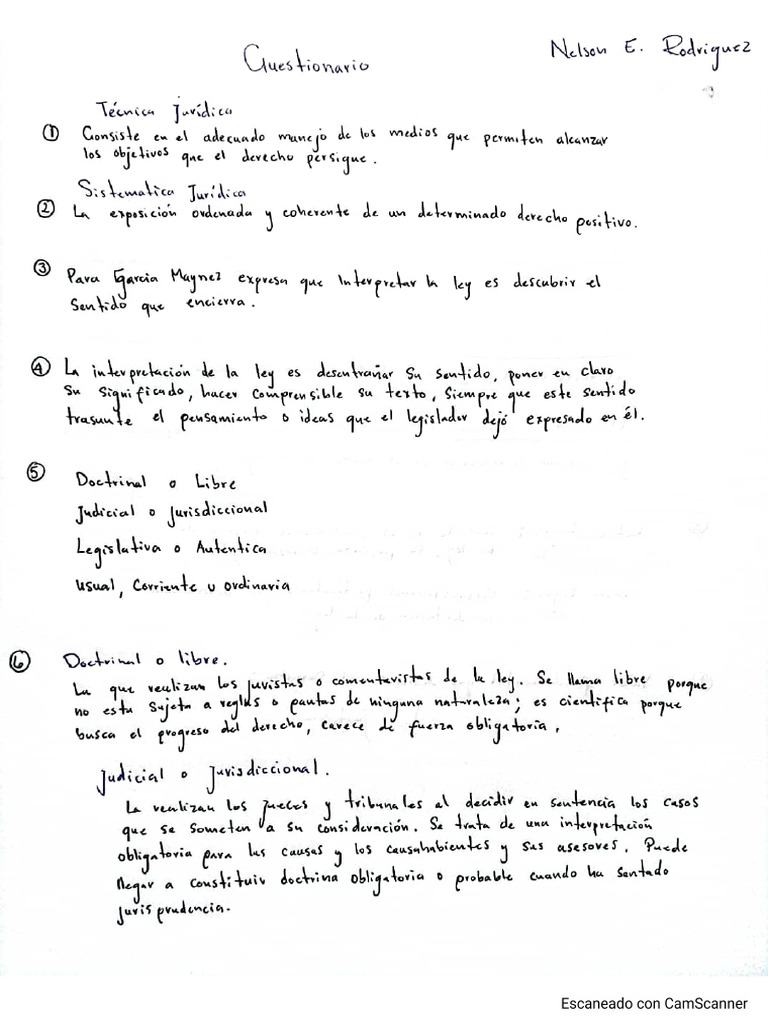 Cuestionario
Nelson E. Rodriguez
Técnica Jurídica
① Consiste en el adecuado manejo de los medios que permiten alcanzar
los objetivos que el derecho persigue.
Sistematica Jurídica
② La exposición ordenada y coherente de un determinado derecho positivo.
③ Para García Maynez expresa que Interpretar la ley es descubrir el
Sentido que encierra.
④ La interpretación de la ley es desentrañar su sentido, poner en claro
su significado, hacer comprensible su texto, siempre que este sentido
trasunte el pensamiento o ideas que el legislador dejó expresado en él.
⑤ Doctrinal o Libre
Judicial o Jurisdiccional
Legislativa o Autentica
usual, Corriente u ordinaria
⑥ Doctrinal o libre.
La que realizan los juristas o comentaristas de la ley. Se llama libre porque
no esta sujeta a reglas o pautas de ninguna naturaleza; es cientifica porque
busca el progreso del derecho, carece de fuerza obligatoria.
Judicial o Jurisdiccional.
La realizan los jueces y tribunales al decidir en sentencia los casos
que se someten a su consideración. Se trata de una interpretación
obligatoria para las causas y los causahabientes y sus asesores. Puede
llegar a constituir doctrina obligatoria o probable cuando ha sentado
jurisprudencia.
Escaneado con CamScanner